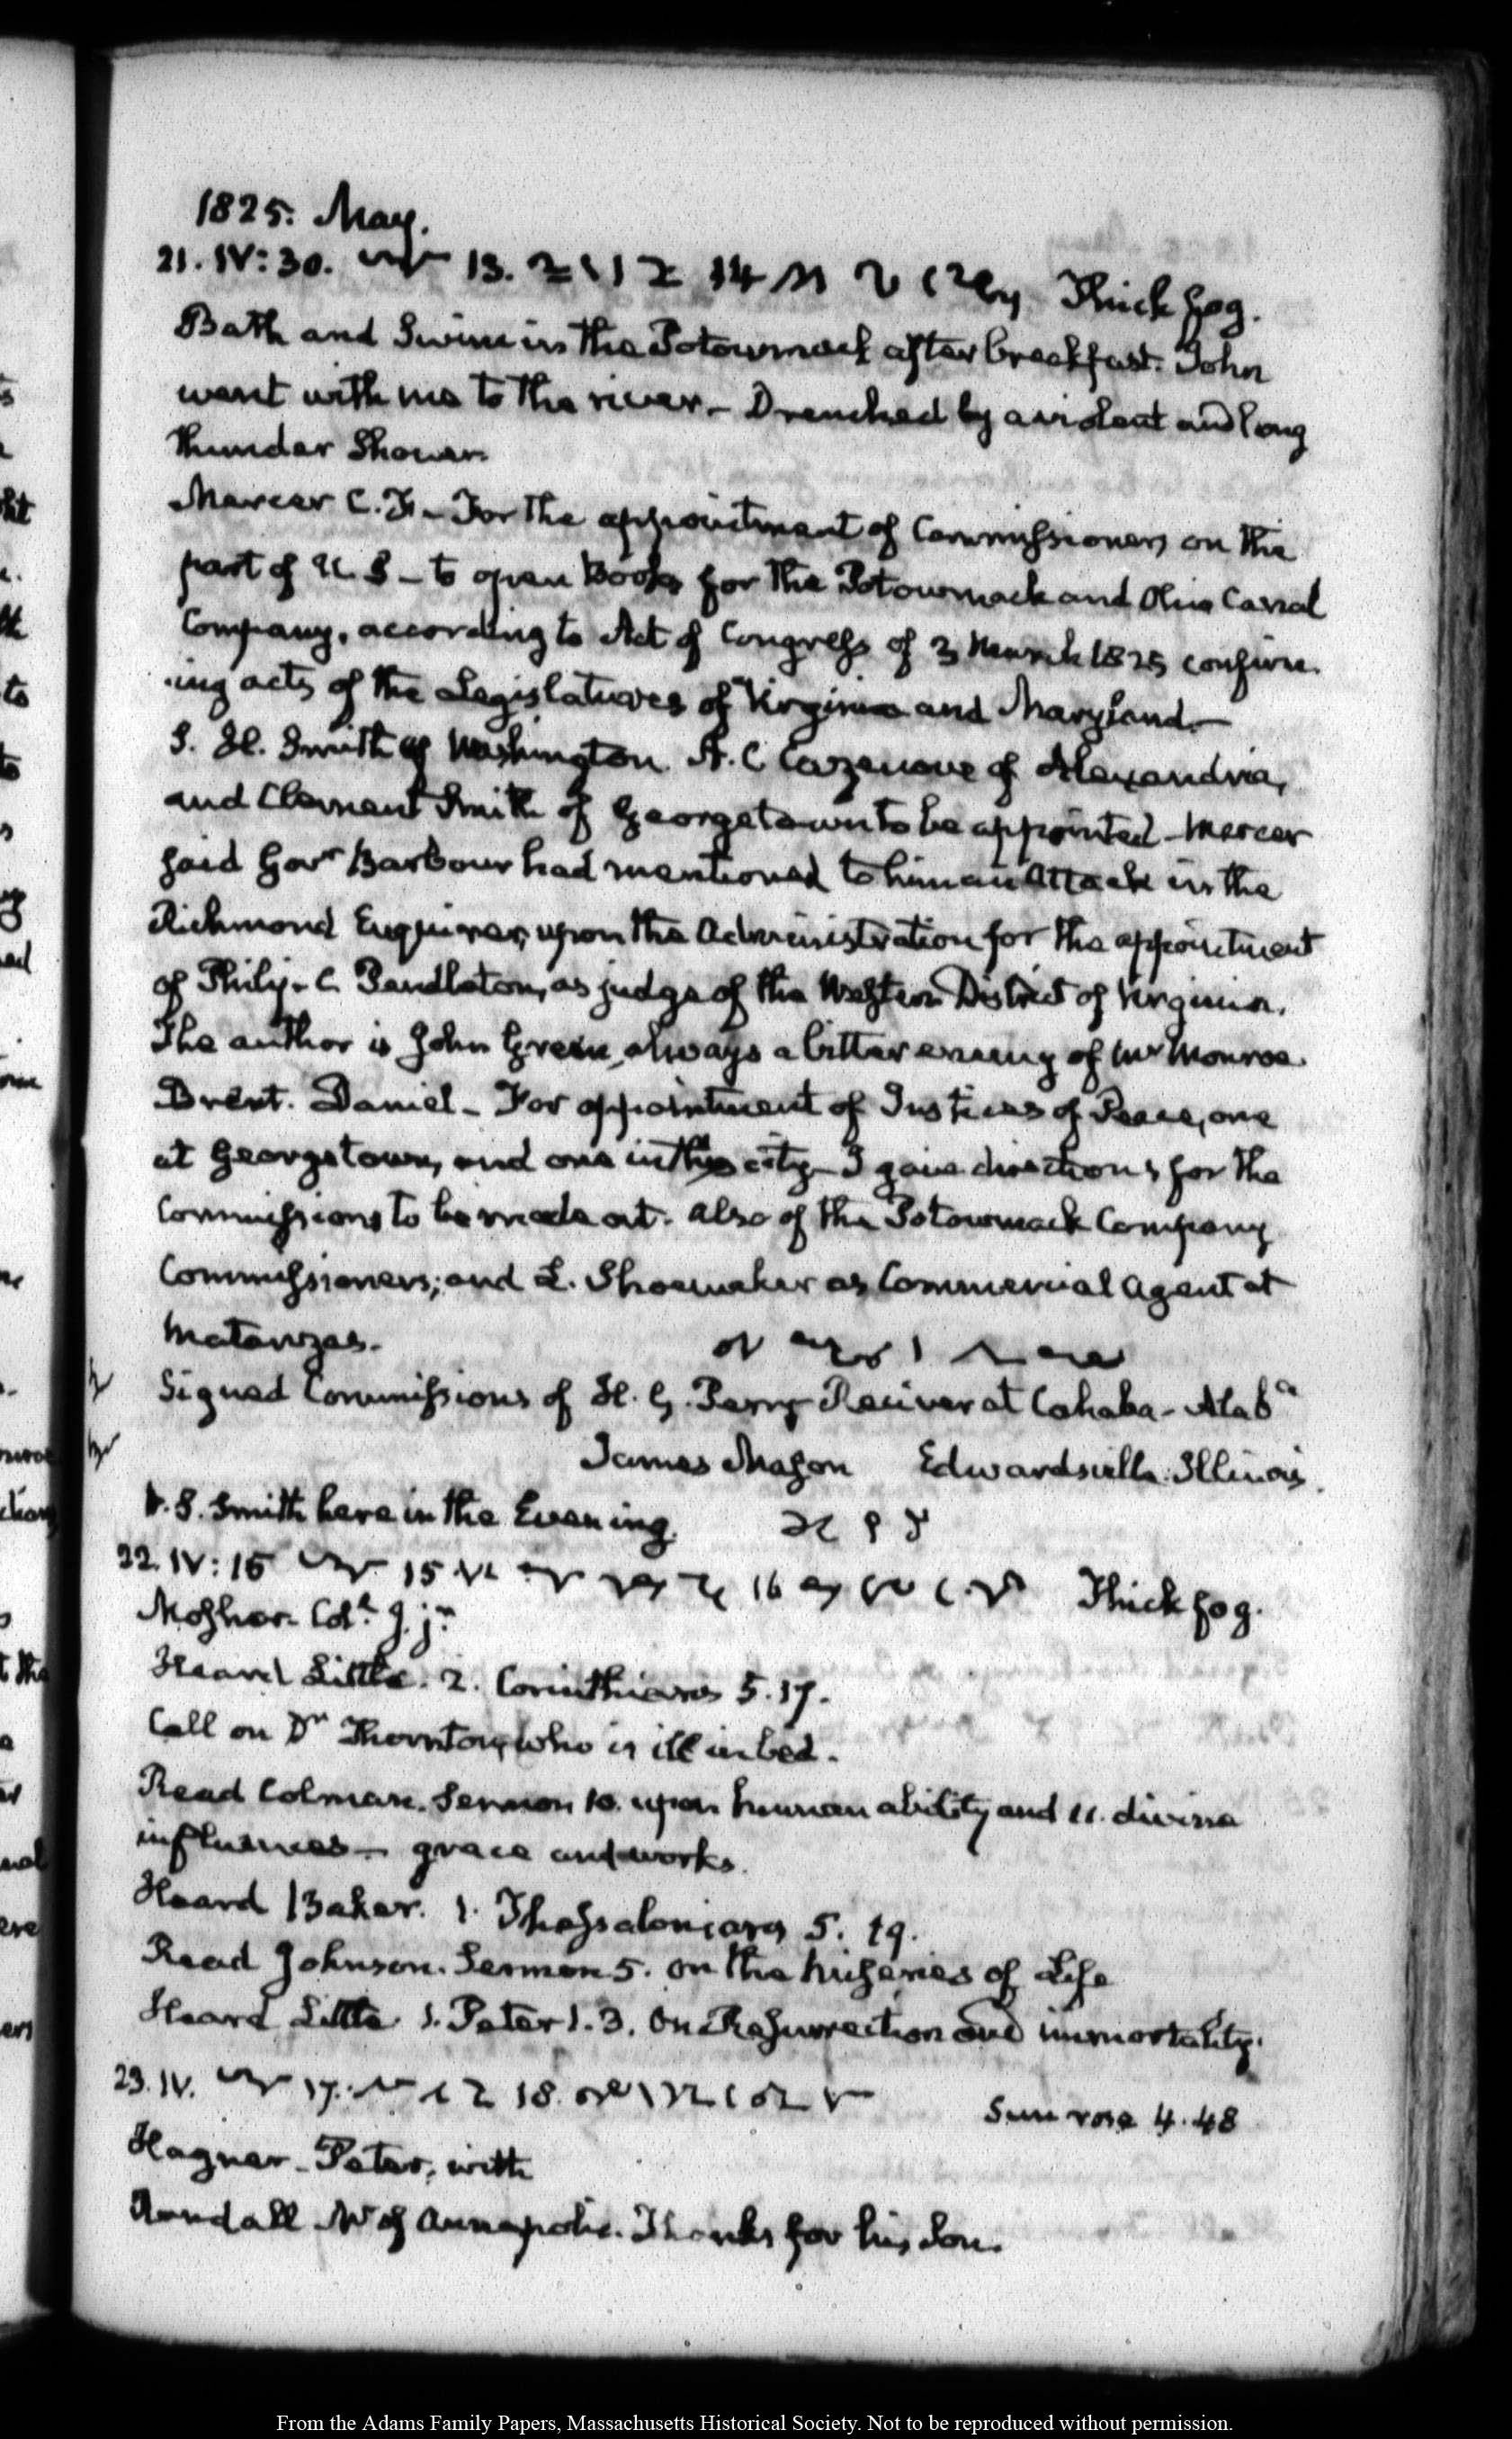 1825. May.
21. IV: 30. 13. 14 Thick fog.
Bath and Swim in the Potowmack after breakfast. John
went with me to the river – Drenched by a violent and long
thunder Shower.
Mercer C. F. – For the appointment of Commissioners on the
part of U. S – to open Books for the Potowmack and Ohio Canal
Company, according to Act of Congress of 3 March 1825 confirm-
ing acts of the Legislatures of Virginia and Maryland –
S. H. Smith of Washington. A. C Cazenove of Alexandria,
and Clement Smith of Georgetown to be appointed – Mercer
said Govr Barbour had mentioned to him an attack in the
Richmond Enquirer, upon the Administration for the appointment
of Philip C. Pendleton, as judge of the Western District of Virginia.
The author is John Green, always a bitter enemy of Mr Monroe.
Brent. Daniel – For appointment of Justices of Peace, one
at Georgetown, and one in this city – I gave directions for the
Commissions to be made out. Also of the Potowmack Company
Commissioners; and L. Shoemaker as Commercial Agent at
Matanzas.
Signed Commissions of H. G. Perry Receiver at Cahaba – Alaba
James Mason Edwardsville. Illinois.
S. Smith here in the Evening.
22. IV: 15 15 16 Thick fog.
Mosher. Coll. J. jr
Heard Little. 2. Corinthians 5. 17.
Call on Dr Thornton, who is ill in bed.
Read Colman. Sermon 10. upon human ability and 11. divine
influences – grace and works.
Heard Baker. 1. Thessalonians 5. 19.
Read Johnson. Sermon 5. on the miseries of Life
Heard Little 1. Peter 1. 3. On Resurrection and immortality.
23. IV. 17. 18. Sun rose 4. 48
Hagner – Peter, with
Randall of Annapolis. Thanks for his Son.
From the Adams Family Papers, Massachusetts Historical Society. Not to be reproduced without permission.